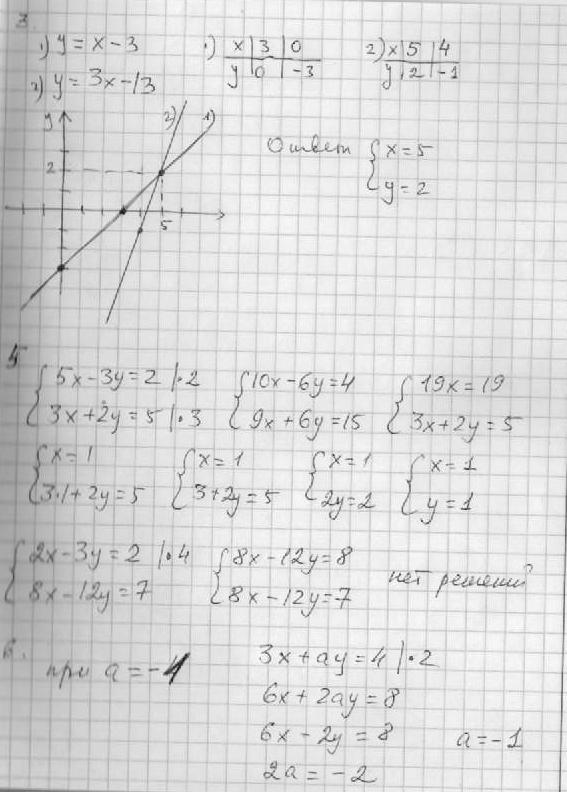 3.
1) y = x - 3
2) y = 3x - 13
1) x | 3 | 0
y | 0 | -3
2) x | 5 | 4
y | 2 | -1
y 2) 1)
2
5
Ответ { x = 5
y = 2
5
{ 5x - 3y = 2 | · 2
3x + 2y = 5 | · 3
{ 10x - 6y = 4
9x + 6y = 15
{ 19x = 19
3x + 2y = 5
{ x = 1
3·1 + 2y = 5
{ x = 1
3 + 2y = 5
{ x = 1
2y = 2
{ x = 1
y = 1
{ 2x - 3y = 2 | · 4
8x - 12y = 7
{ 8x - 12y = 8
8x - 12y = 7
нет решений
6.
при a = -1
3x + ay = 4 | · 2
6x + 2ay = 8
6x - 2y = 8
2a = -2
a = -1